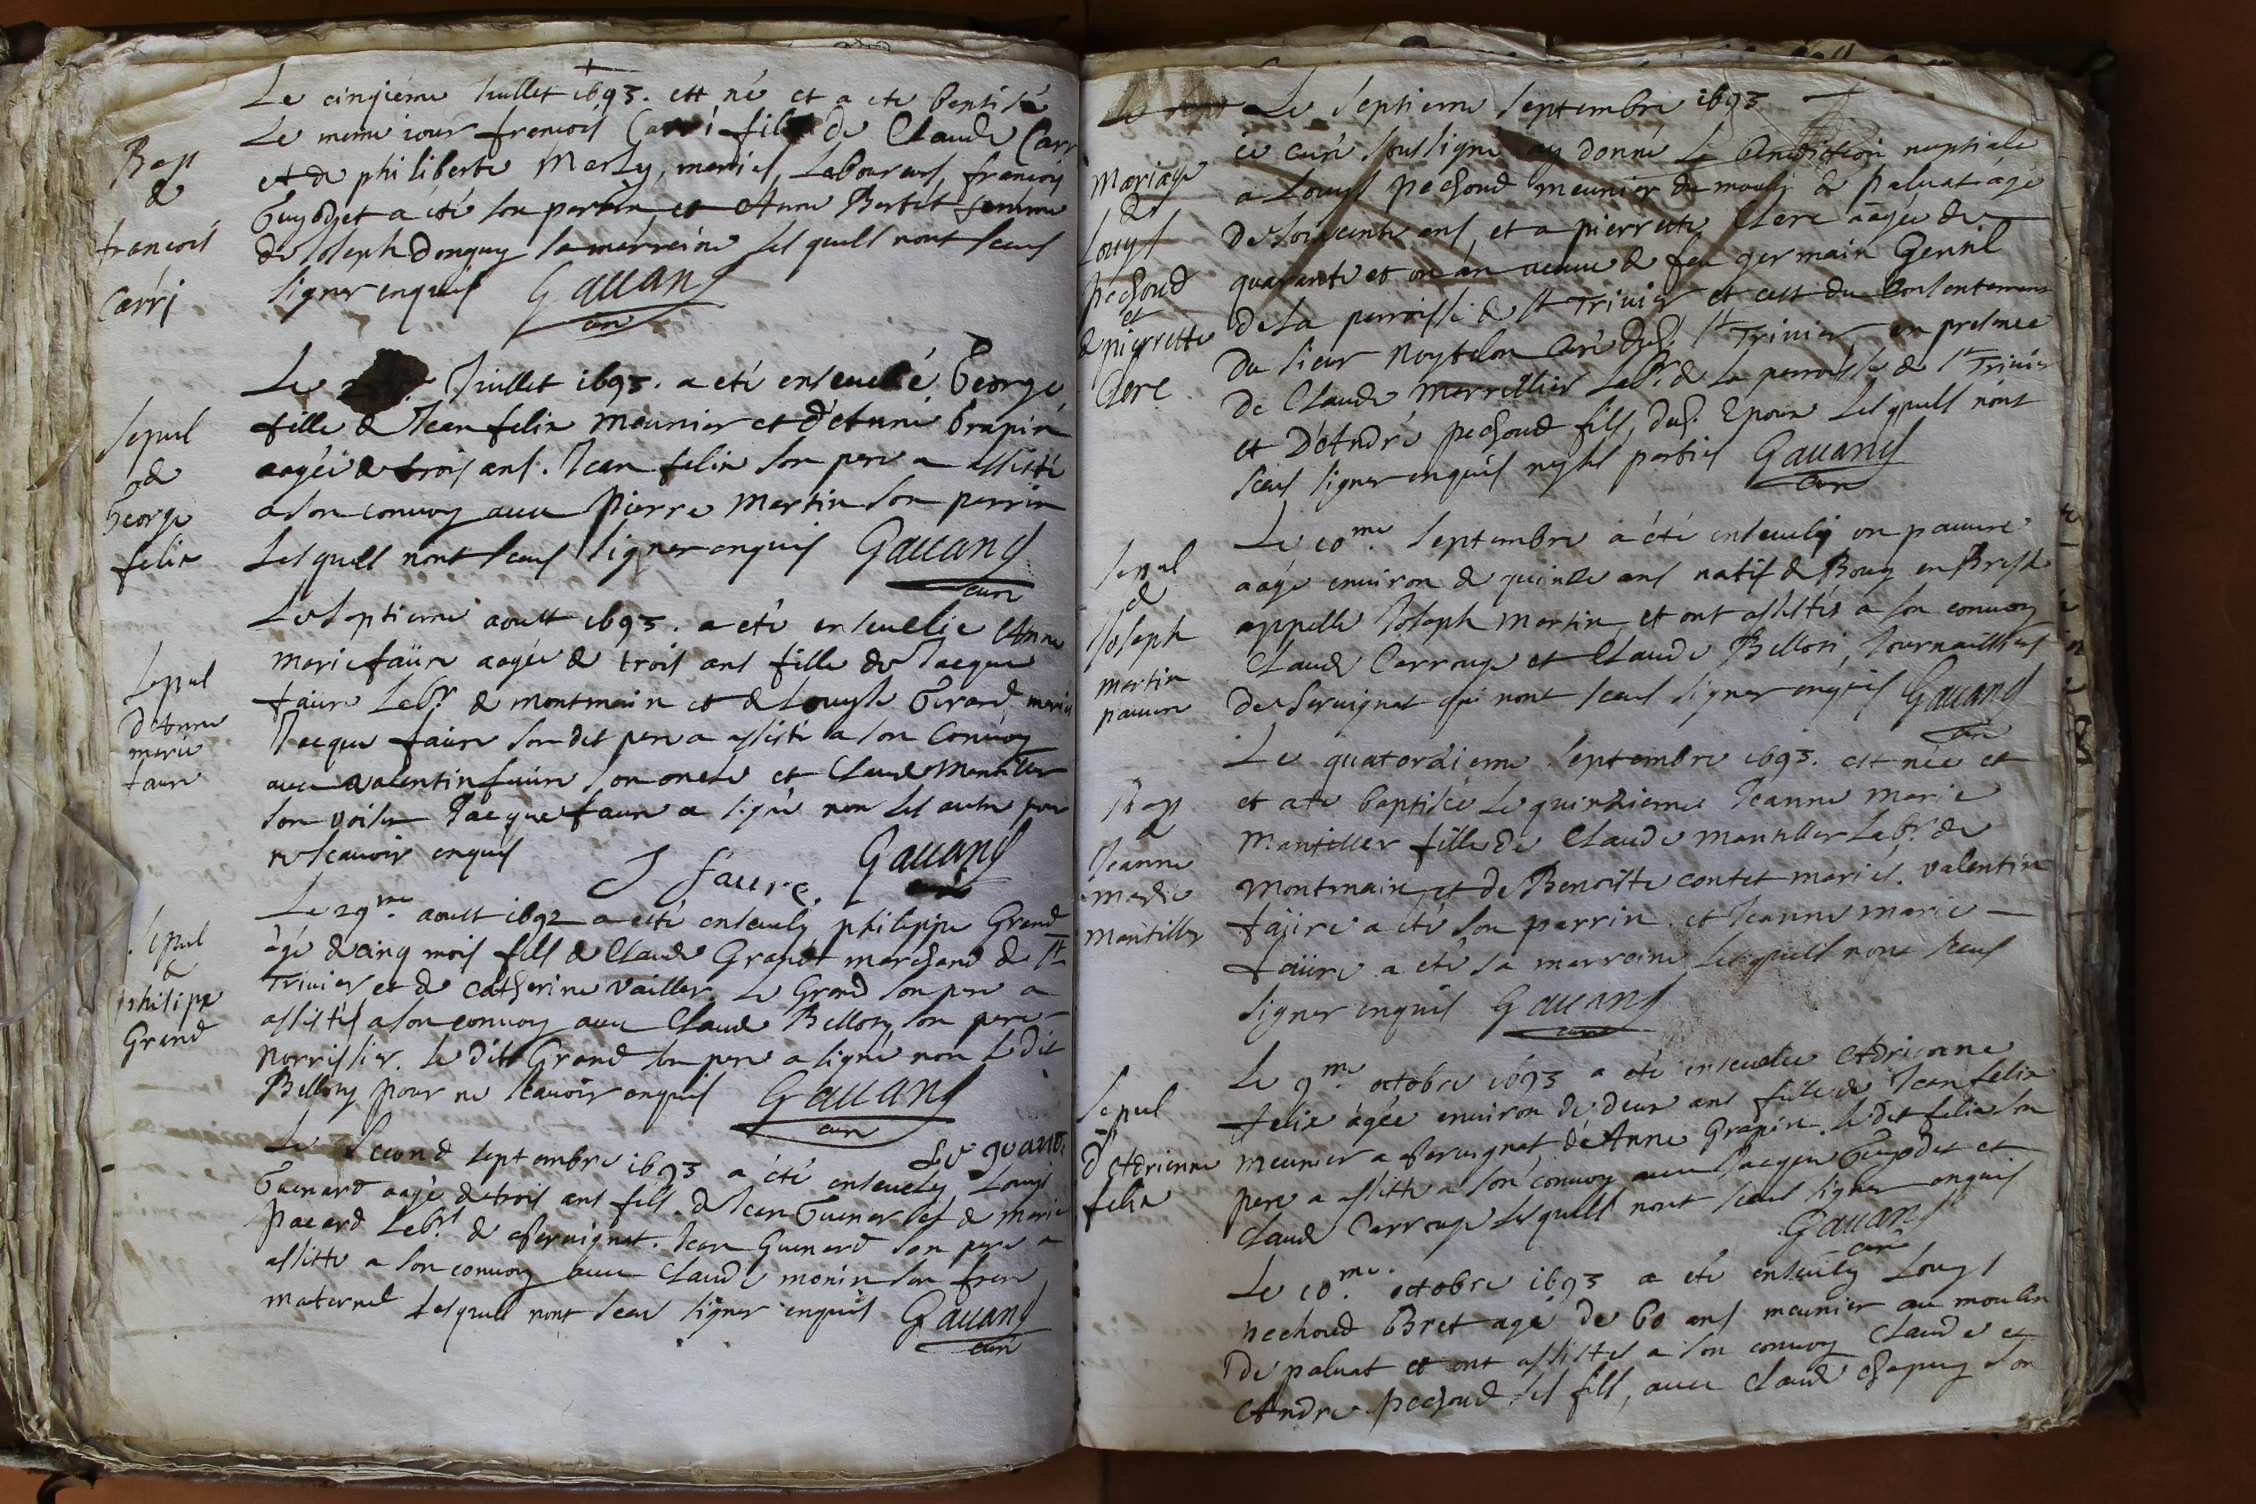 Bap
de
francois
Carri
Le cinqieme Juillet 1693. est né et a ete baptisé
Le meme iour francois Carri fils de Claude Carri
et de philiberte Marly, mariés, Laboureurs, francois
Guyodet a été son parrin et Anne Bertet femme
de Joseph Donguy sa marreine Lesquels nont sceus
signer enquis Gauand
curé
Sepul
de
George
felix
Le Juillet 1693. a eté enseuelié George
fille de Jean felix meunier et d'Anne Grapin
aagée de trois ans. Jean felix son pere a assisté
a son conuoy auec Pierre Martin son parrin
Lesquels nont sceus signer enquis Gauand
curé
Sepul
d'Anne
marie
faure
Le Septieme aoust 1693. a eté enseuelie Anne
Marie faure aagée de trois ans fille de Jacque
faure Labr. de montmain et de Louyse Girard mariés
Jacque faure son dit pere a assisté a son conuoy
auec valentin faure son oncle et Claude Mantiller
son voisin Jacque faure a signé non les autre pour
ne scauoir enquis J faure. Gauand
curé
Sepul
de
philipe
Grand
Le 29me. aoust 1692 a esté enseuely philippe Grand
agé de cinq mois fils de Claude Grand marchand de St
Triuier et de Catherine vailler. Le Grand son pere a
assistés a son conuoy auec Claude Bellony son pere
norrissier. Le dit Grand son pere a signé non Le dit
Bellony pour ne scauoir enquis Gauand
curé
Le grand
Le Second septembre 1693 a été enseuely Louys
Guenard aagé de trois ans fils de Jean Guenard et de marie
pacard Labrs de Seruignat. Jean Guenard son pere a
assisté a son conuoy auec Claude monin son frere
maternel Lesquels nont sceu signer enquis Gauand
curé
Mariage
de
Louys
pechoud
et
de pierrette
Clerc
Le Septieme Septembre 1693
ie curé soussigné ay donné La Benediction nuptiale
a Louys pechoud meunier du moulin de paluat agé
de soixante ans, et a pierrette Clerc aagée de
quarante et un an veuue de feu germain Gentil
de La parroisse de St Triuier et cest du Consentement
du sieur Noytolon Curé dud. St Triuier, en presence
de Claude marrillier Labr. de la parroisse de St Triuier
et D'André pechoud fils dud. Epoux Lesquels nont
sceus signer enquis parties Gauand
curé
Sepul
de
Joseph
martin
pauure
Le 10me. Septembre a été enseuely un pauure
aagé enuiron de quinze ans natif de Bourg en Bresse
appellé Joseph Martin et ont assistés a son conuoy
Claude Carrouge et Claude Bellon, Journailliers
de Seruignat qui nont sceus signer enquis Gauand
curé
Bap
de
Jeanne
marie
Mantiller
Le quatorzieme Septembre 1693. est née et
et a ete baptisée Le quinzieme Jeanne Marie
Mantiller fille de Claude Mantiller Labr. de
Montmain et de Benoiste contet mariés. valentin
faure a eté son parrin et Jeanne marie
faure a eté sa marraine Lesquels nont sceus
signer enquis Gauand
curé
Sepul
d'Adrienne
felix
Le 9me. octobre 1693 a eté enseuelie Adrienne
felix agée enuiron de deux ans fille de Jean felix
meunier a Seruignat, de Anne Grapin. Le dit felix son
pere a assisté a son conuoy auec Jacque Guyodet et
Claude Carrouge Lesquels nont sceus signer enquis
Gauand
curé
Le 10me. octobre 1693 a eté enseuely Louys
pechoud Bret agé de 60 ans meunier au moulin
de paluat et ont assistés a son conuoy Claude et
Andre pechoud ses fils, auec Claude chapuy son